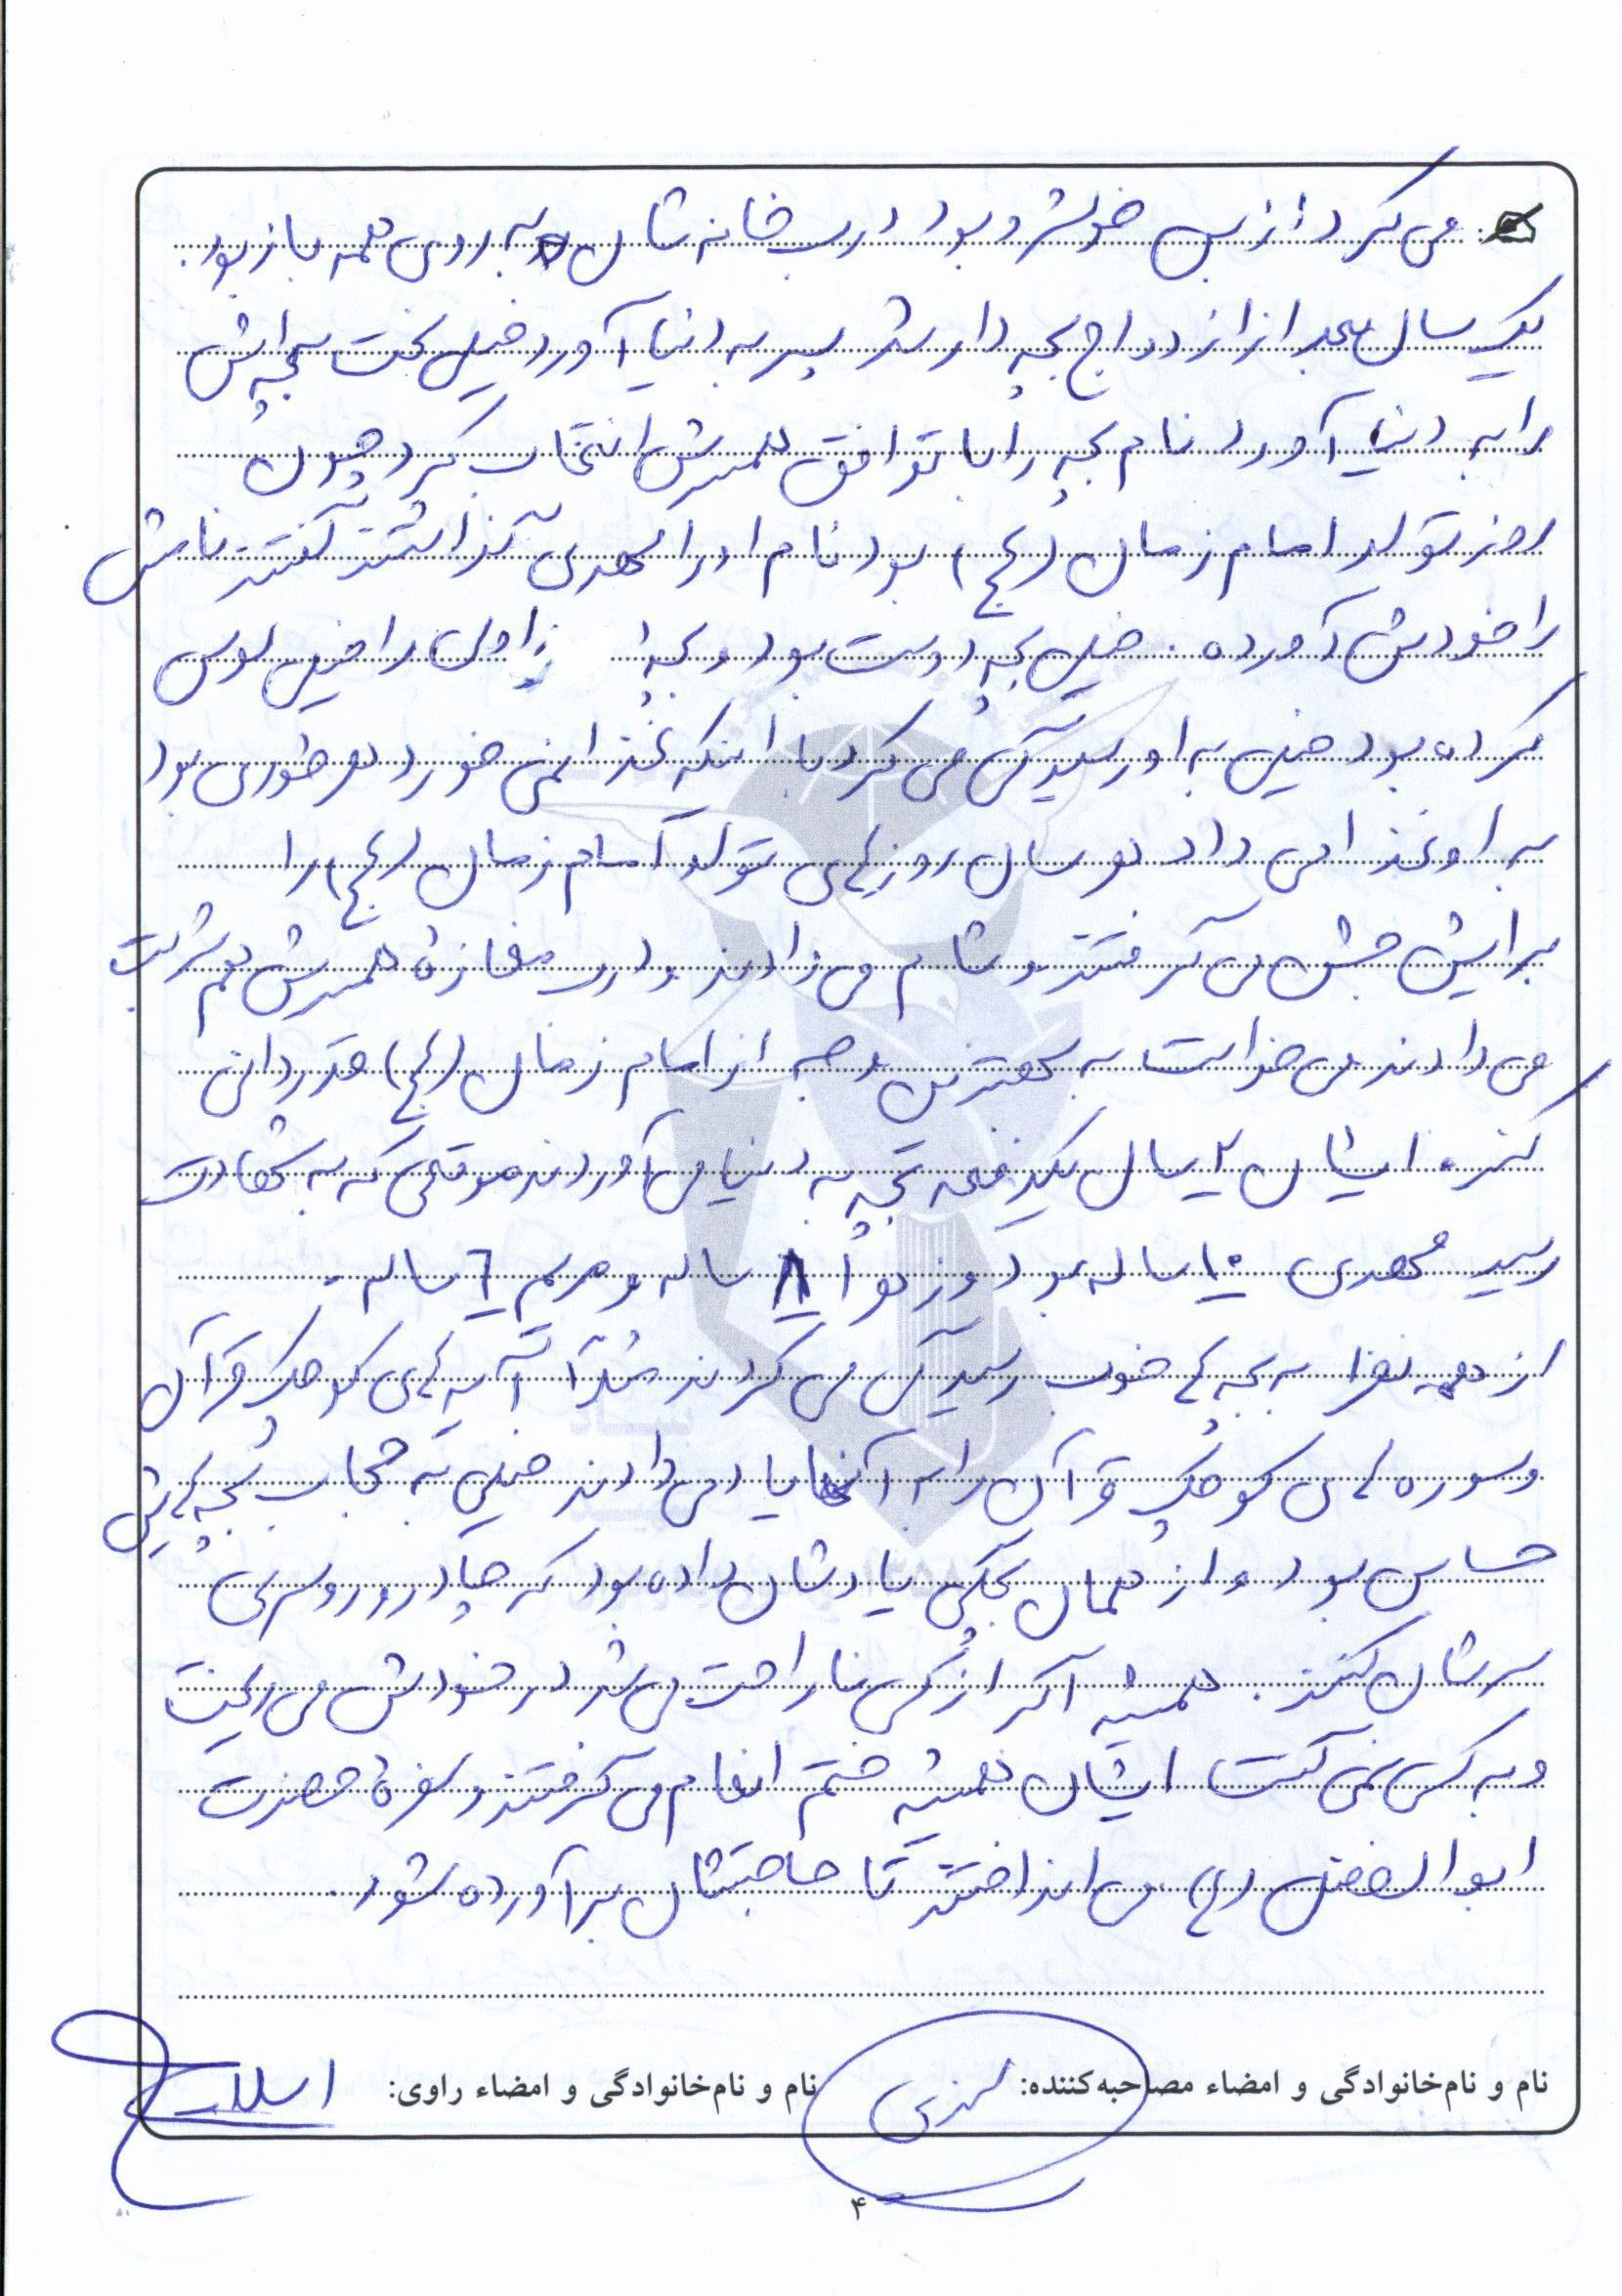 می کرد از بس خوشرو بود درب خانه شان به روی همه باز بود.
یک سال بعد از ازدواج بچه دار شد پسر به دنیا آورد خیلی سخت بچه اش
را به دنیا آورد نام بچه را با توافق همسرش انتخاب کرد چون
روز تولد امام زمان (عج) بود نام او را مهدی گذاشتند گفتند نامش
را خودش آورده. خیلی بچه دوست بود و بچه اولی را خیلی لوس
کرده بود خیلی به او رسیدگی می کرد با اینکه غذا نمی خورد هر طوری بود
به او غذا می داد هر سال روزهای تولد امام زمان (عج) را
برایش جشن می گرفتند و شام می دادند و درب مغازهٔ همسرش هم شربت
می دادند می خواست به بهترین وجه از امام زمان (عج) قدردانی
کند. ایشان ۲ سال یکدفعه بچه به دنیا می آوردند موقعی که به شهادت
رسید مهدی ۱۰ ساله بود و زهرا ۸ ساله و مریم ۶ ساله.
از همه نظر به بچه ها خوب رسیدگی می کردند مثلاً آیه های کوچک قرآن
و سوره های کوچک قرآن را به آنها یاد می دادند خیلی به حجاب بچه هایش
حساس بود و از همان بچگی یادشان داده بود که چادر و روسری
سرشان کنند. همیشه اگر از کسی ناراحت می شد در خودش می ریخت
و به کسی نمی گفت ایشان همیشه ختم انعام می گرفتند و سفرهٔ حضرت
ابوالفضل (ع) می انداختند تا حاجتشان برآورده شود.
نام و نام‌خانوادگی و امضاء مصاحبه‌کننده:
نام و نام‌خانوادگی و امضاء راوی:
۴